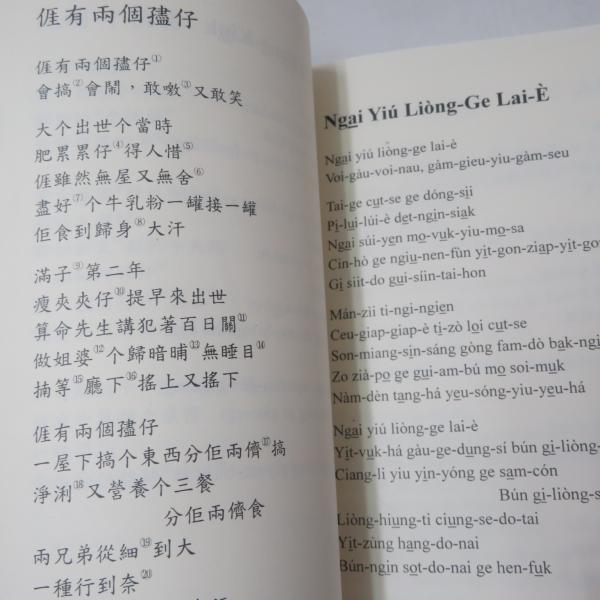 𠊎有兩個孻仔
𠊎有兩個孻仔①
會搞②會鬧，敢噭③又敢笑
大个出世个當時
肥累累仔④得人惜⑤
𠊎雖然無屋又無舍⑥
盡好⑦个牛乳粉一罐接一罐
佢食到歸身⑧大汗
滿子⑨第二年
瘦夾夾仔⑩提早來出世
算命先生講犯著百日關⑪
做姐婆⑫个歸暗晡⑬無睡目⑭
揇等⑮廳下⑯搖上又搖下
𠊎有兩個孻仔
一屋下搞个東西分佢兩儕⑰搞
淨淍⑱又營養个三餐
分佢兩儕食
兩兄弟從細⑲到大
一種行到奈⑳
Ngai Yiú Liòng-Ge Lai-È
Ngai yiú liòng-ge lai-è
Voi-gàu-voi-nau, gàm-gieu-yiu-gàm-seu
Tai-ge cut-se ge dóng-sii
Pi-lui-lúi-è det-ngin-siak
Ngai súi-yen mo-vuk-yiu-mo-sa
Cin-hò ge ngiu-nen-fùn yit-gon-ziap-yit-gon
Gi siit-do gui-siin-tai-hon
Mán-zii ti-ngi-ngien
Ceu-giap-giap-è ti-zò loi cut-se
Son-miang-sin-sáng gòng fam-dò bak-ngi
Zo zià-po ge gui-am-bú mo soi-muk
Nàm-dèn tang-há yeu-sóng-yiu-yeu-há
Ngai yiú liòng-ge lai-è
Yit-vuk-há gàu-ge-dung-sí bún gi-liòng-
Ciang-li yiu yin-yóng ge sam-cón
Bún gi-liòng-s
Liòng-hiung-ti ciung-se-do-tai
Yit-zùng hang-do-nai
Bún-ngin sot-do-nai ge hen-fuk